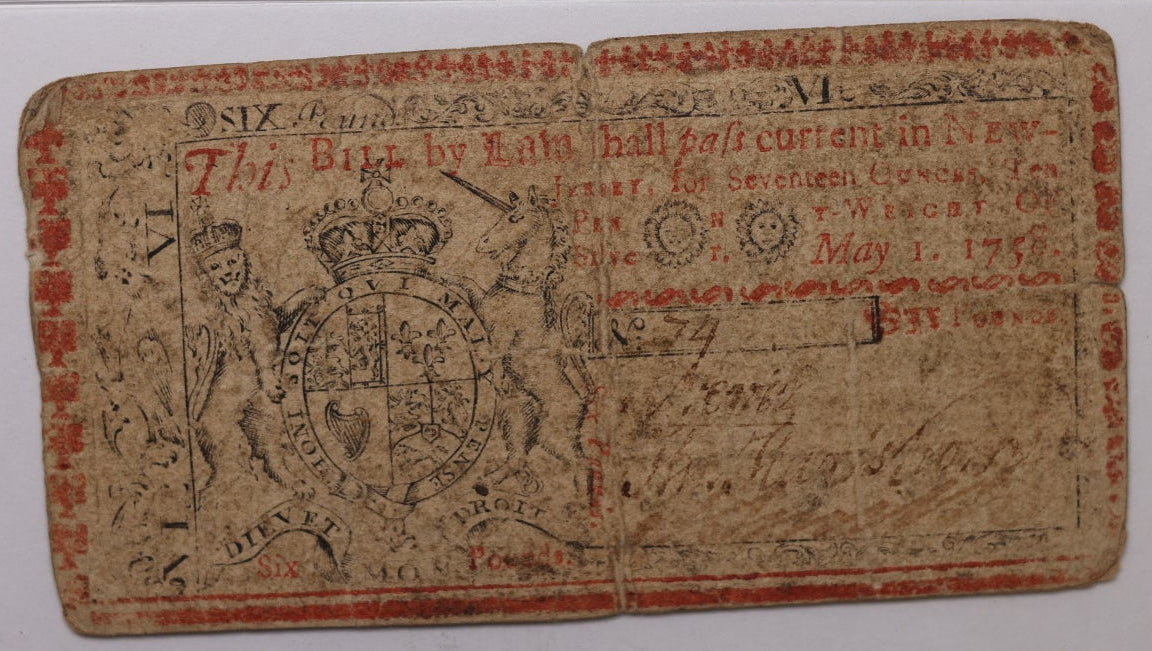 SIX Pounds VI
This BILL by Law ſhall paſs current in NEW-
JERSEY, for Seventeen OUNCES, Ten
PEN N Y-WEIGHT OF
SILVE R. May 1. 1758.
VI
No. 74 SIX POUNDS
HONI SOIT QVI MAL Y PENSE
Six Pounds.
VI
DIEV ET MON DROIT
Six Pounds.